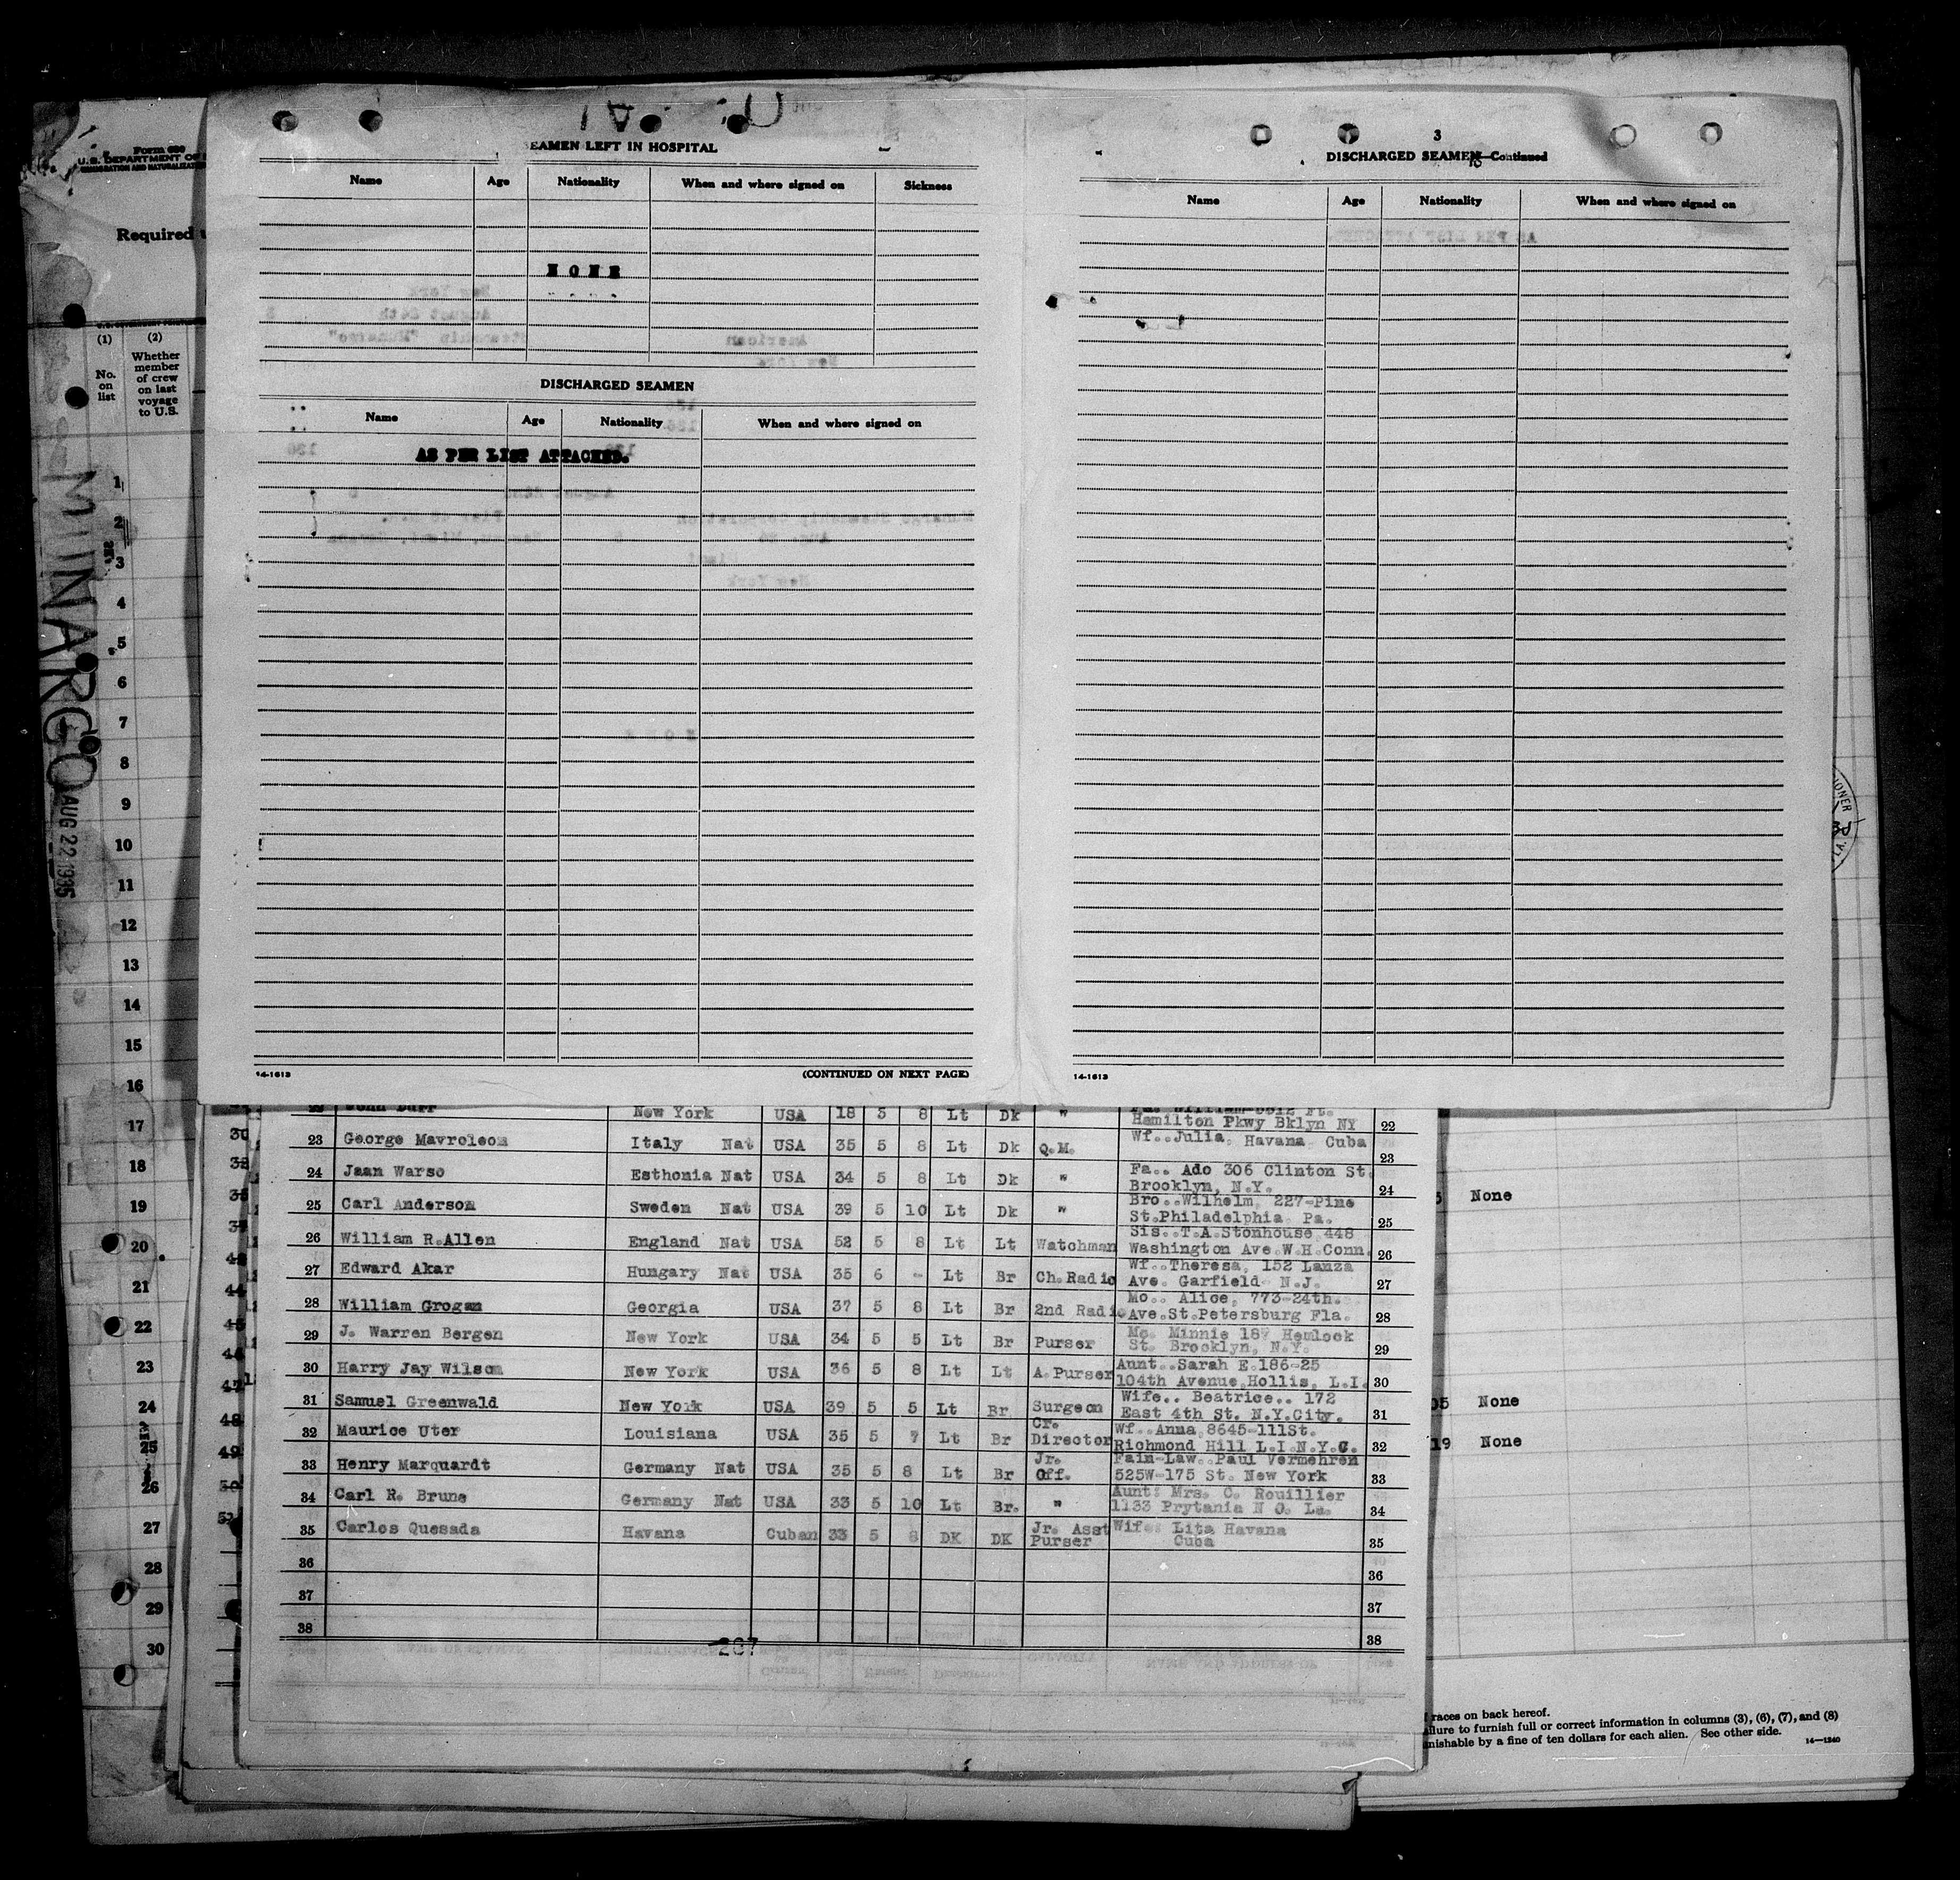 Form 680
U.S. DEPARTMENT OF
IMMIGRATION AND NATURALIZATION
Required
(1)
(2)
No.
on
list
Whether
member
of crew
on last
voyage
to U.S.
MUNARGO
AUG 22 1935
1
2
3
4
5
6
7
8
9
10
11
12
13
14
15
16
17
18
19
20
21
22
23
24
25
26
27
28
29
30
EAMEN LEFT IN HOSPITAL
Name Age Nationality When and where signed on Sickness
NONE
DISCHARGED SEAMEN
Name Age Nationality When and where signed on
AS PER LIST ATTACHED.
14-1613 (CONTINUED ON NEXT PAGE)
3
DISCHARGED SEAMEN—Continued
Name Age Nationality When and where signed on
14-1613
John Duff New York USA 18 5 8 Lt Dk "
Hamilton Pkwy Bklyn NY 22
23 George Mavroleom Italy Nat USA 35 5 8 Lt Dk Q.M. Wf..Julia, Havana Cuba 23
24 Jaan Warso Esthonia Nat USA 34 5 8 Lt Dk " Fa.. Ado 306 Clinton St.
Brooklyn, N.Y. 24
25 Carl Anderson Sweden Nat USA 39 5 10 Lt Dk " Bro..Wilhelm, 227-Pine
St.Philadelphia Pa. 25
26 William R.Allen England Nat USA 52 5 8 Lt Lt Watchman Sis..T.A.Stonhouse 448
Washington Ave.W.H.Conn. 26
27 Edward Akar Hungary Nat USA 35 6 - Lt Br Ch.Radio Wf..Theresa, 152 Lanza
Ave. Garfield N.J. 27
28 William Grogan Georgia USA 37 5 8 Lt Br 2nd Radio Mo.. Alice, 773-24th.
Ave.St.Petersburg Fla. 28
29 J. Warren Bergen New York USA 34 5 5 Lt Br Purser Mo. Minnie 187 Hemlock
St. Brooklyn, N.Y. 29
30 Harry Jay Wilson New York USA 36 5 8 Lt Lt A.Purser Aunt..Sarah E.186-25
104th Avenue,Hollis, L.I. 30
31 Samuel Greenwald New York USA 39 5 5 Lt Br Surgeon Wife.. Beatrice.. 172
East 4th St. N.Y.City. 31
32 Maurice Uter Louisiana USA 35 5 7 Lt Br Cr. Director Wf..Anna 8645-111St.
Richmond Hill L.I.N.Y.C. 32
33 Henry Marquardt Germany Nat USA 35 5 8 Lt Br Jr. Off. Fain-Law..Paul Vermehren
525W-175 St. New York 33
34 Carl R. Brune Germany Nat USA 33 5 10 Lt Br. " Aunt: Mrs. C. Rouillier
1133 Prytania N O. La. 34
35 Carlos Quesada Havana Cuban 33 5 8 DK DK Jr. Asst Purser Wife: Lita Havana
Cuba 35
36 36
37 37
38 38
207
None
05 None
19 None
races on back hereof.
ailure to furnish full or correct information in columns (3), (6), (7), and (8)
nishable by a fine of ten dollars for each alien. See other side.
14—1240